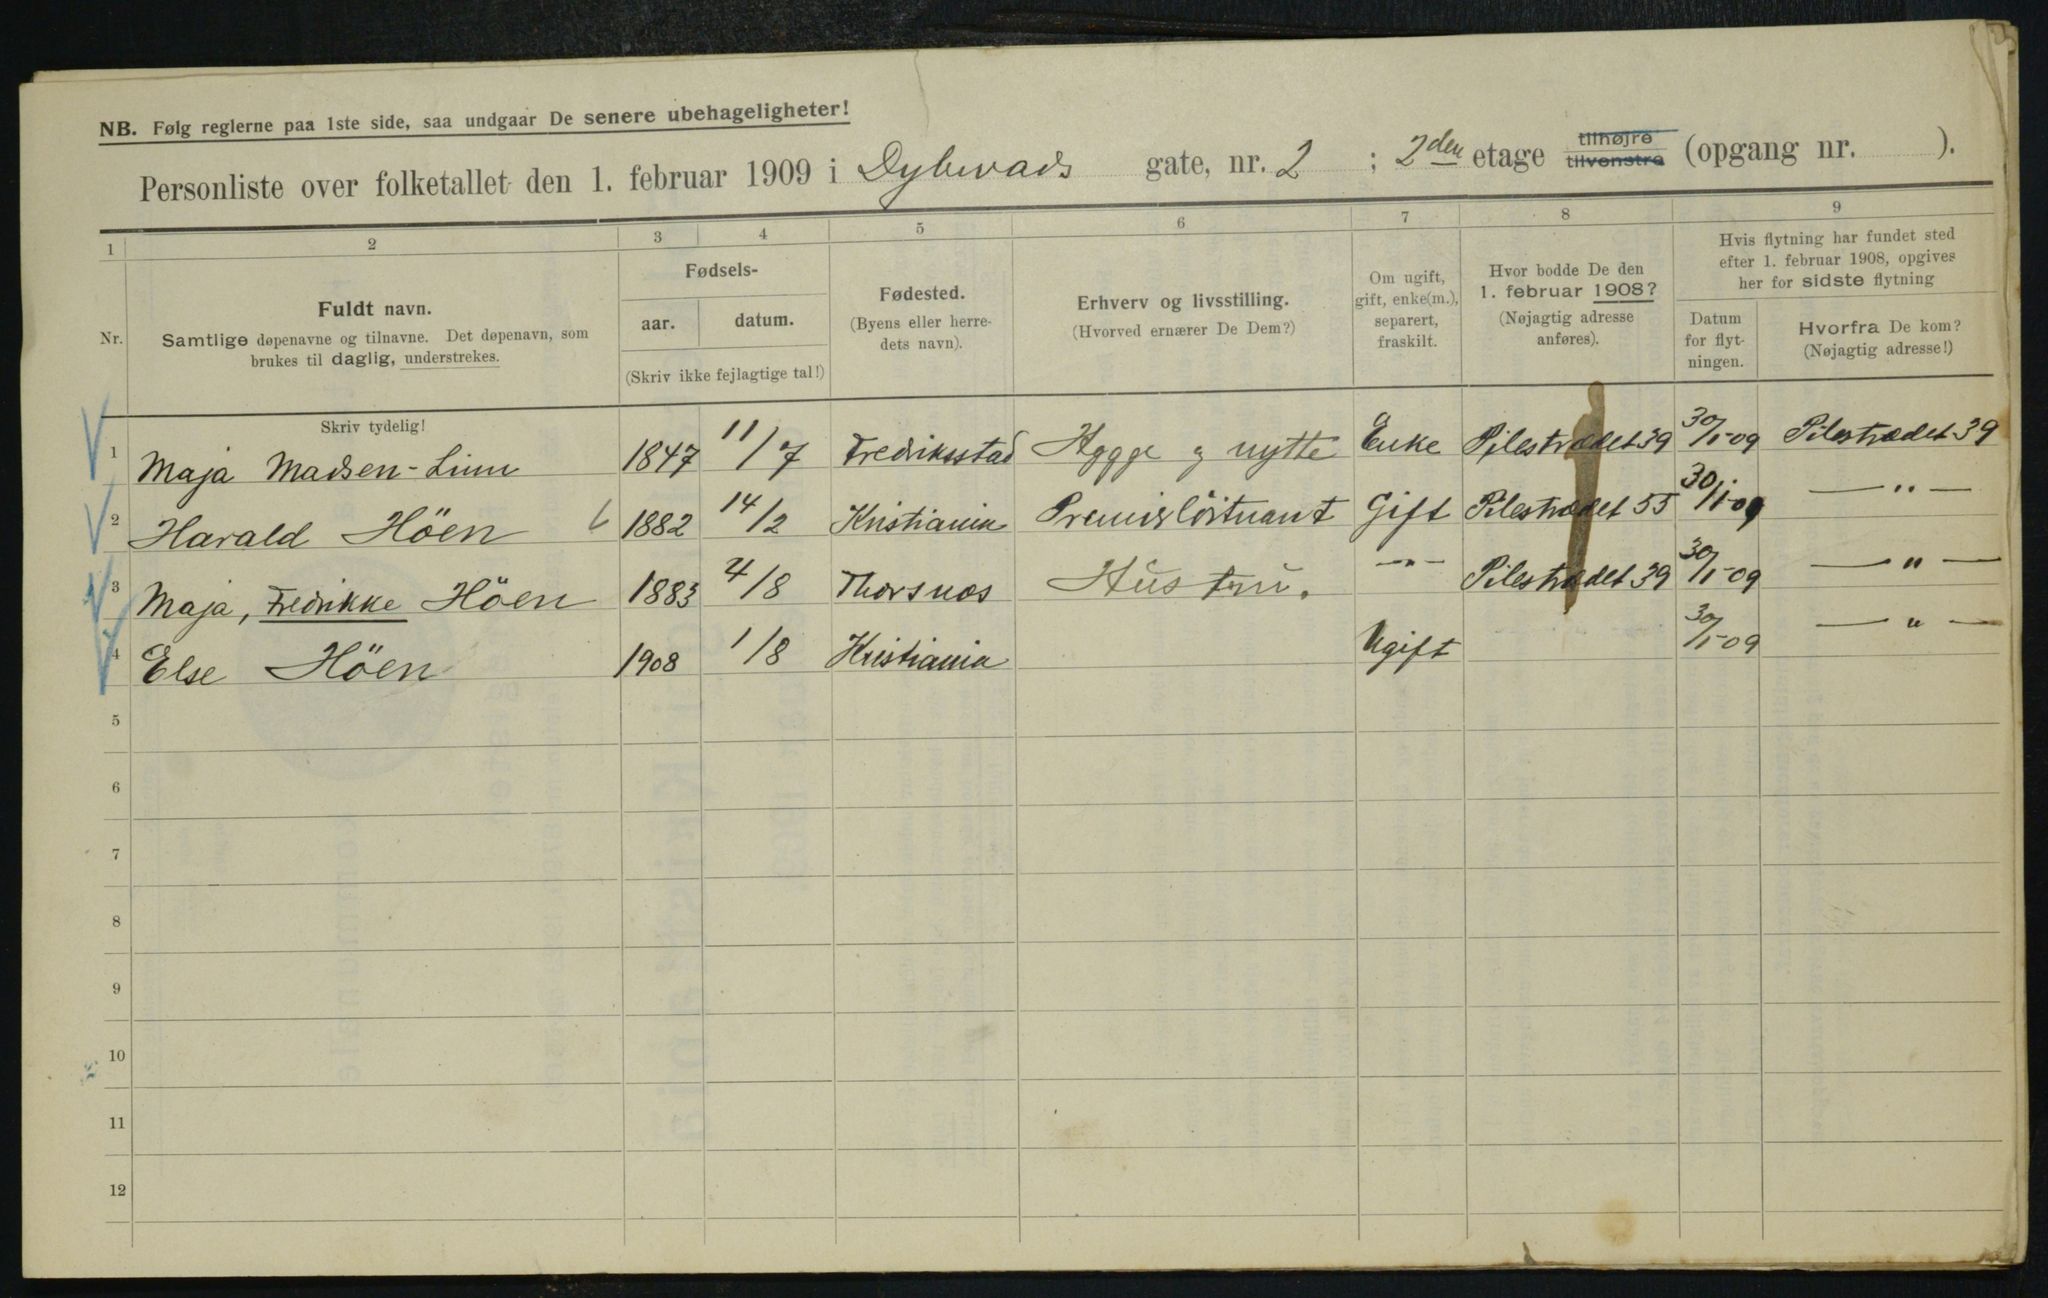 NB. Følg reglerne paa 1ste side, saa undgaar De senere ubehageligheter!
Personliste over folketallet den 1. februar 1909 i Dybwads gate, nr. 2 ; 2den etage tilhøjre tilvenstre (opgang nr. ).
1 2 3 4 5 6 7 8 9
Nr.
Fuldt navn.
Samtlige døpenavne og tilnavne. Det døpenavn, som
brukes til daglig, understrekes.
Fødsels-
aar. datum.
(Skriv ikke fejlagtige tal!)
Fødested.
(Byens eller herre-
dets navn).
Erhverv og livsstilling.
(Hvorved ernærer De Dem?)
Om ugift,
gift, enke(m.),
separert,
fraskilt.
Hvor bodde De den
1. februar 1908?
(Nøjagtig adresse
anføres).
Hvis flytning har fundet sted
efter 1. februar 1908, opgives
her for sidste flytning
Datum
for flyt-
ningen.
Hvorfra De kom?
(Nøjagtig adresse!)
Skriv tydelig!
1 Maja Madsen-Linn 1847 11/7 Fredriksstad Hygge og nytte Enke Pilestrædet 39 30/1-09 Pilestrædet 39
2 Harald Höen 1882 14/2 Kristiania Premierlöitnant Gift Pilestrædet 55 30/1-09 — " —
3 Maja, Fredrikke Höen 1883 4/8 Thorsnæs Hüstrü. -"- Pilestrædet 39 30/1-09 — " —
4 Else Höen 1908 1/8 Kristiania Ugift 30/1-09 — " —
5
6
7
8
9
10
11
12